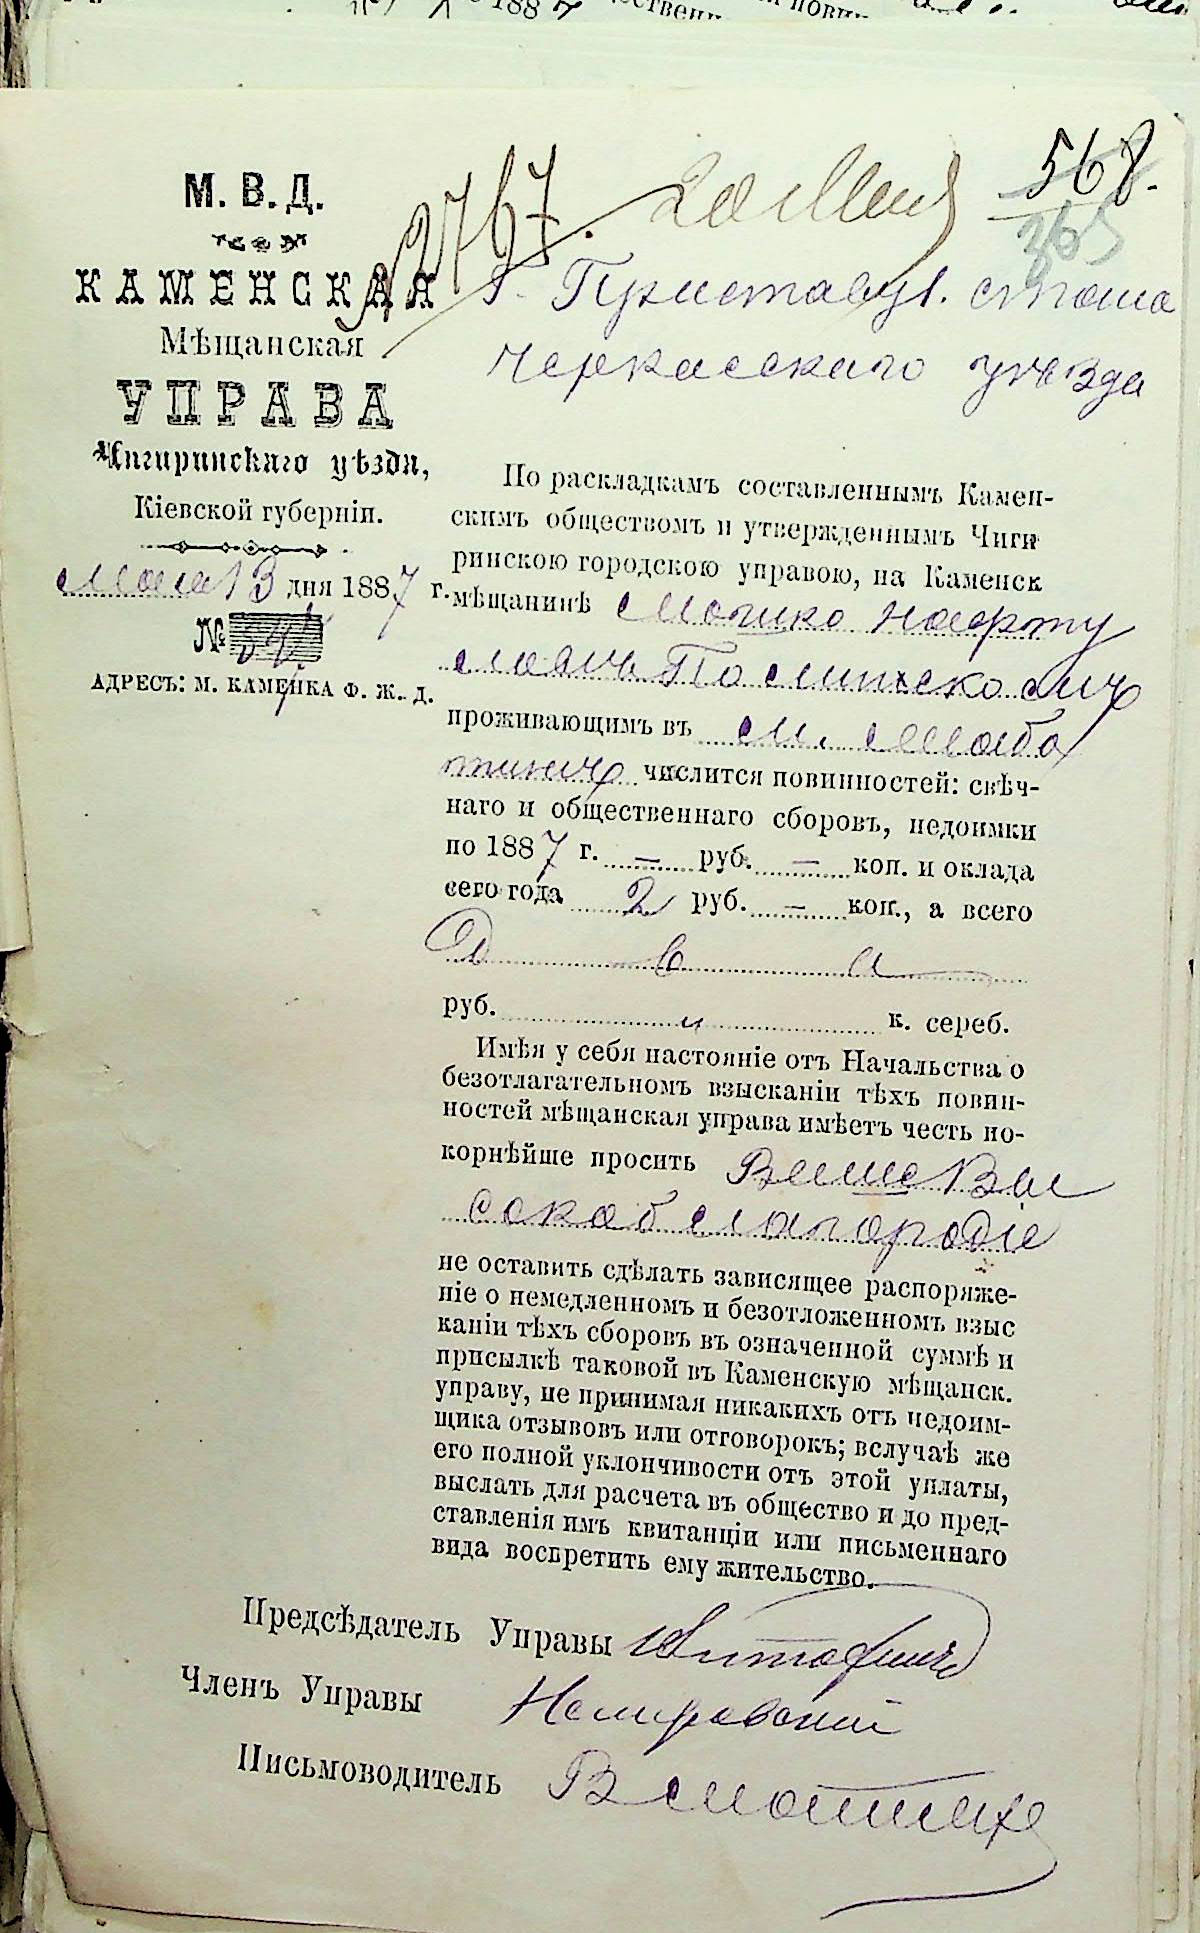 1887
568.
365
2767. 20 Мая
М. В. Д.
КАМЕНСКАЯ
Мѣщанская
УПРАВА
Чигиринскаго уѣзда,
Кіевской губерніи.
Мая 13 дня 1887 г.
№
АДРЕСЪ: М. КАМЕНКА Ф. Ж. Д.
Г. Приставу 1. стана
Черкасскаго уѣзда
По раскладкамъ составленнымъ Камен-
скимъ обществомъ и утвержденнымъ Чиги
ринскою городскою управою, на Каменск
мѣщанинѣ Мошко Нафту
проживающимъ въ м. Смѣла
числится повинностей: свѣч-
наго и общественнаго сборовъ, недоимки
по 1887 г. — руб. — коп. и оклада
сего года 2 руб. — коп., а всего
Два
руб. и к. сереб.
Имѣя у себя настояніе отъ Начальства о
безотлагательномъ взысканіи тѣхъ повин-
ностей мѣщанская управа имѣетъ честь по-
корнѣйше просить Ваше Вы
сокоблагородіе
не оставить сдѣлать зависящее распоряже-
ніе о немедленномъ и безотложенномъ взыс
каніи тѣхъ сборовъ въ означенной суммѣ и
присылкѣ таковой въ Каменскую мѣщанск.
управу, не принимая никакихъ отъ недоим-
щика отзывовъ или отговорокъ; вслучаѣ же
его полной уклончивости отъ этой уплаты,
выслать для расчета въ общество и до пред-
ставленія имъ квитанціи или письменнаго
вида воспретить ему жительство.
Предсѣдатель Управы
Членъ Управы Немировскій
Письмоводитель